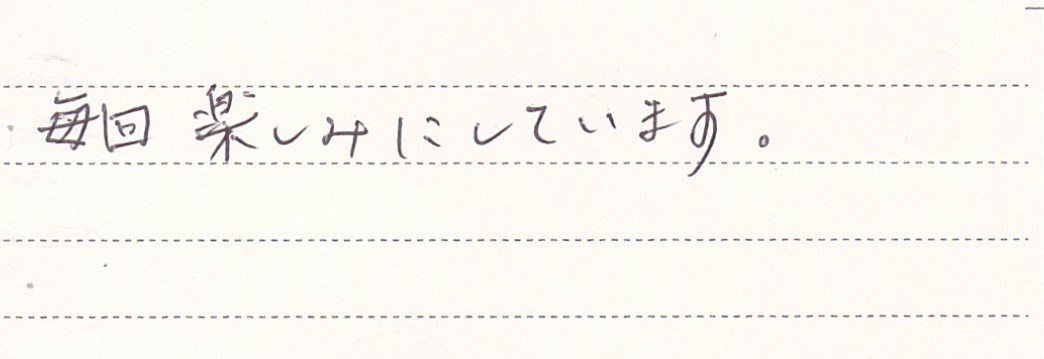 毎回 楽しみにしています。